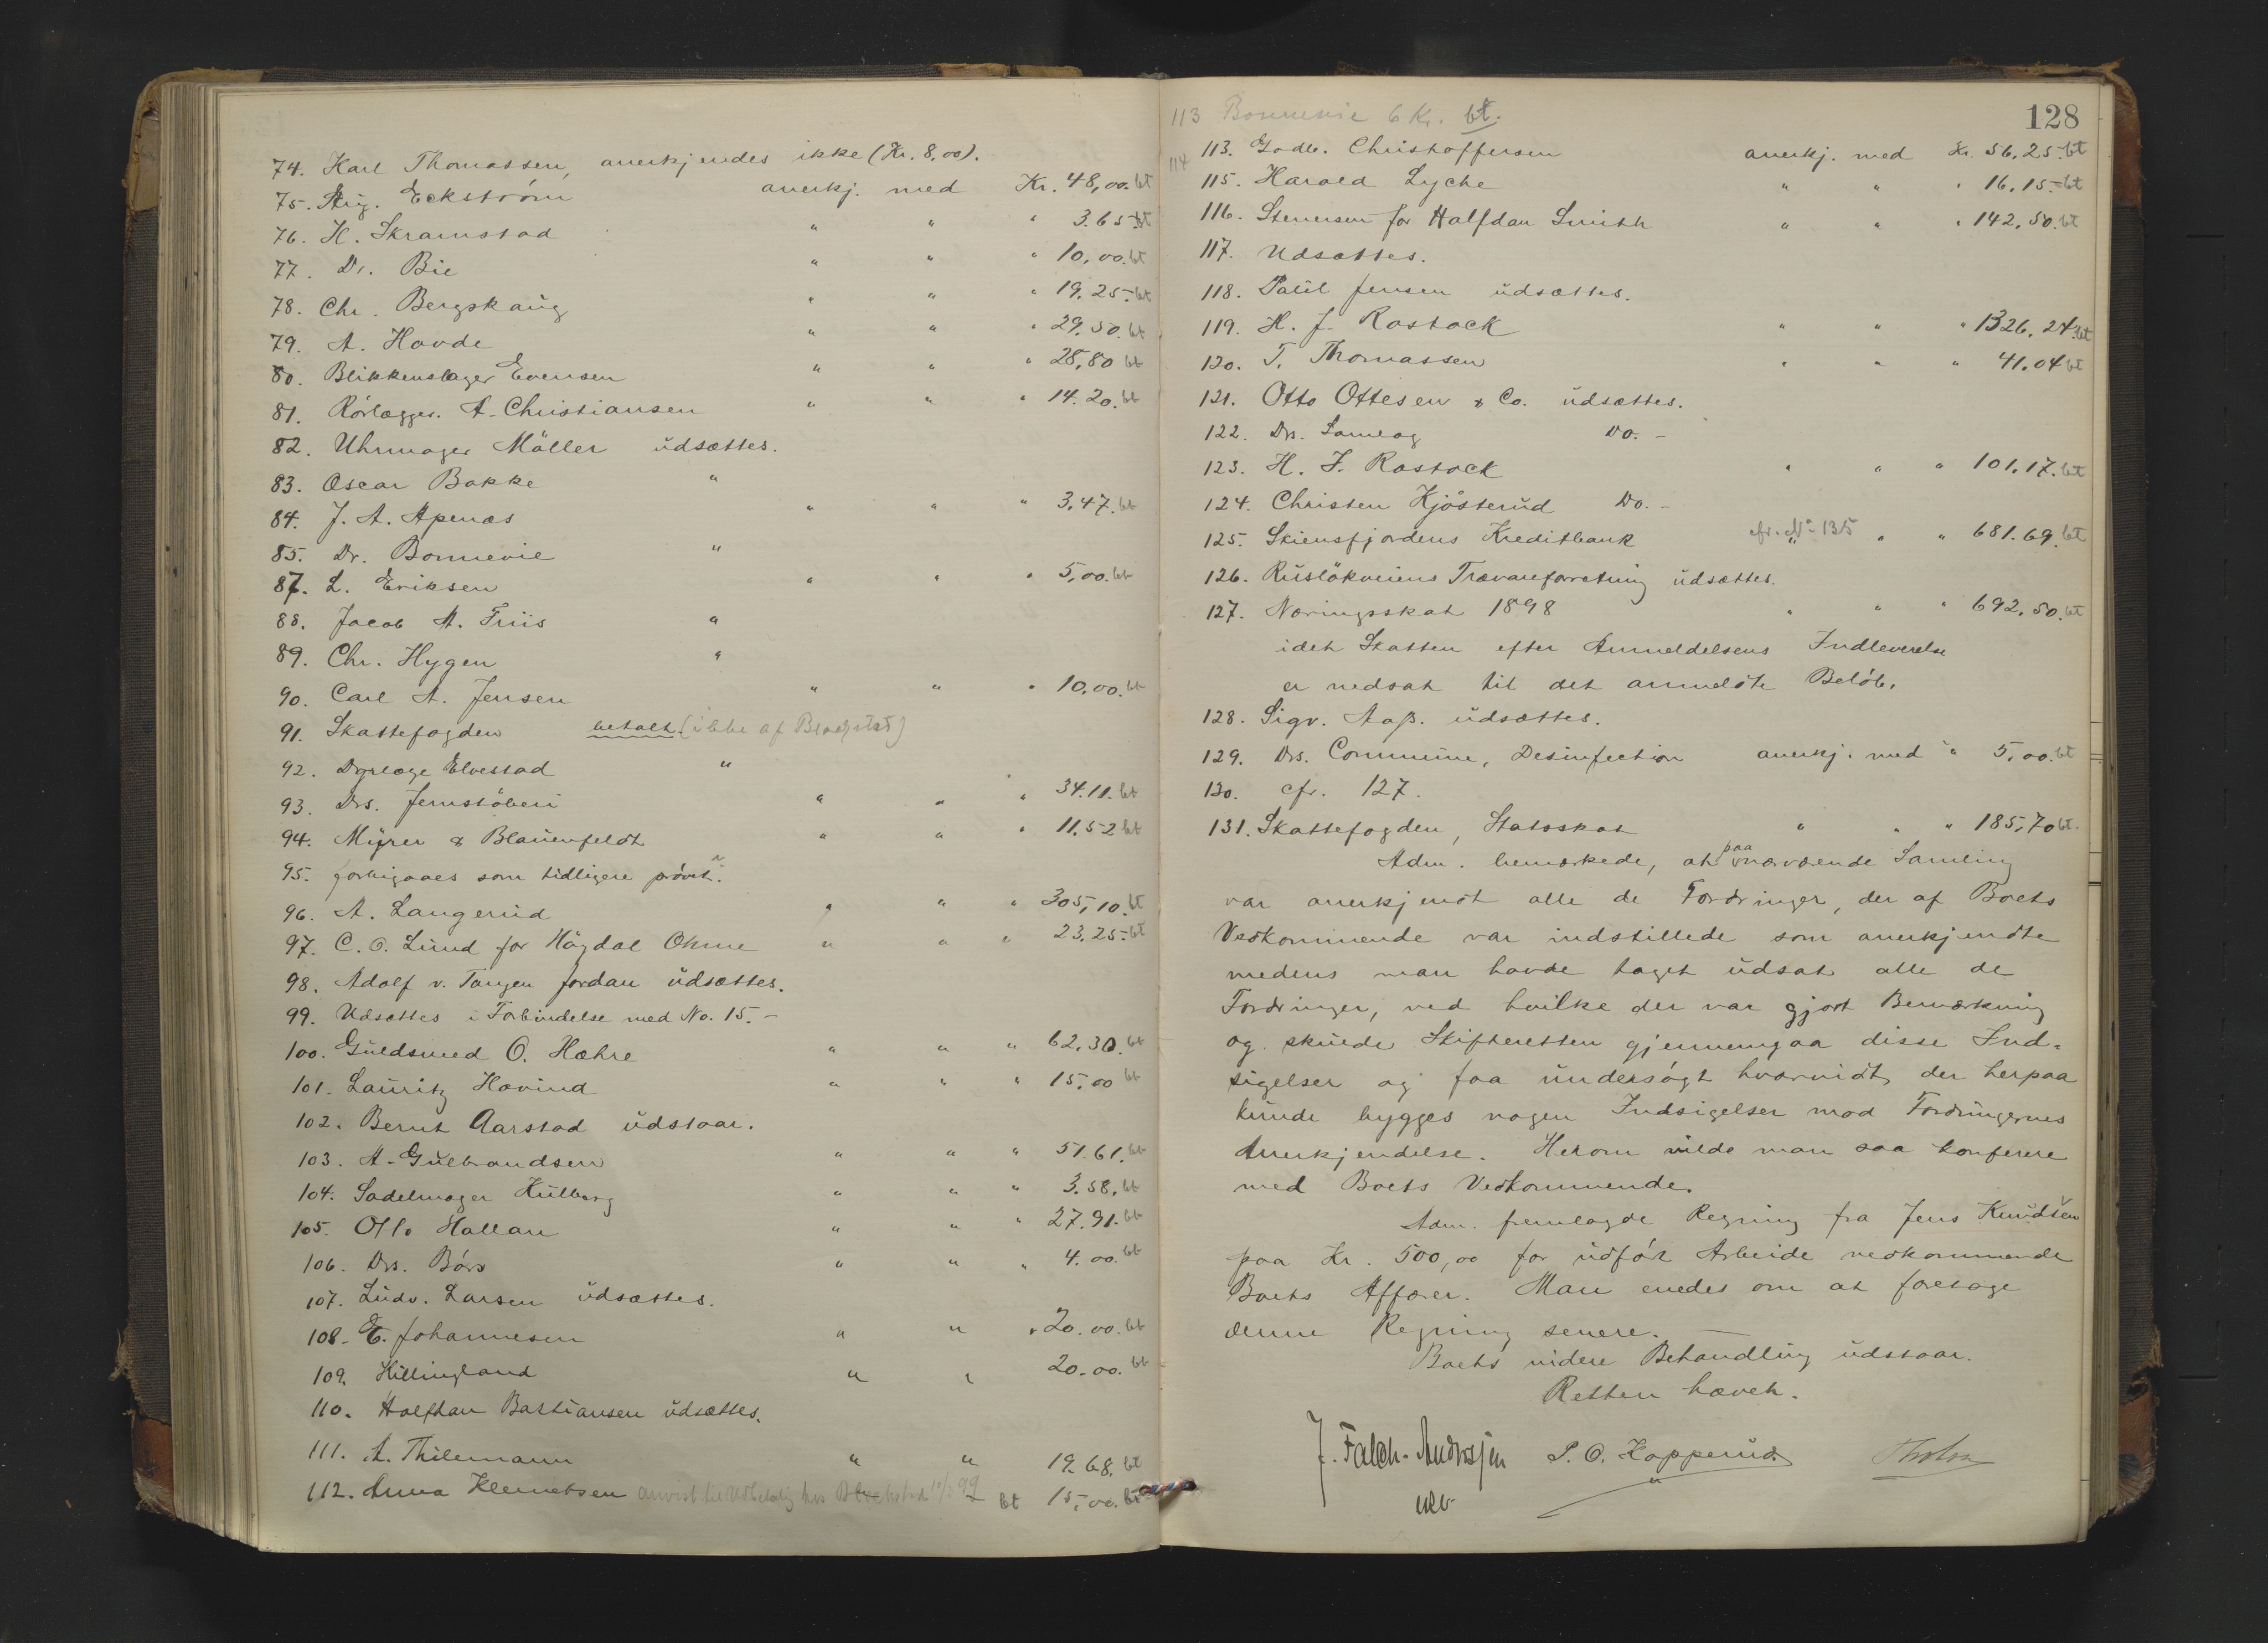 74. Karl Thomassen, anerkjendes ikke (Kr. 8,00).
75. Aug. Eckström anerkj. med Kr. 48,00. bt
76. H. Skramstad " " " 3.65. bt
77. Dr. Bie " " " 10,00. bt
78. Chr. Bergskaug " " " 19.25. bt
79. A. Hovde " " " 29.50. bt
80. Blikkenslager Evensen " " " 28,80 bt
81. Rörlægger A. Christiansen " " " 14.20. bt
82. Uhrmager Möller udsættes.
83. Oscar Bakke "
84. J. A. Apenæs " " " 3,47. bt
85. Dr. Bonnevie "
87. L. Eriksen " " " 5,00. bt
88. Jacob A. Friis "
89. Chr. Hygen "
90. Carl A. Jensen " " " 10,00. bt
91. Skattefogden betalt. (ikke af
92. Dyrlæge Elvestad "
93. Drs. Jernstöberi " " " 34.11. bt
94. Myrer & Blauenfeldt " " " 11.52 bt
95. forbigaaes som tidligere prövet.
96. A. Langerud " " " 305,10. bt
97. C. O. Lund for Hägdal Ohme " " " 23.25. bt
98. Adolf v. Tangen Jordan udsættes.
99. Udsættes i Forbindelse med No. 15. -
100. Guldsmed O. Hæhre " " " 62.30. bt
101. Lauritz Hovind " " " 15,00 bt
102. Bernt Aarstad udstaar.
103. A. Gulbrandsen " " " 51.61. bt
104. Sadelmager Hulberg " " " 3.58. bt
105. Otto Hallan " " " 27.91. bt
106. Drs. Börs " " " 4.00. bt
107. Ludv. Larsen udsættes.
108. E. Johannesen " " " 20.00. bt
109. Killingland " " 20.00. bt
110. Halfdan Bastiansen udsættes.
111. A. Thilemann " " 19.68. bt
112. Anna Klemetsen anvist til Udbetalig hos 10/3 99 bt 15,00. bt
128
113 Bonnevie 6 Kr. bt.
114
113. Godb. Christoffersen anerkj. med Kr. 56,25. bt
115. Harald Lyche " " " 16,15. bt
116. Stenersen for Halfdan Smith " " " 142,50. bt
117. Udsættes.
118. Paul Jensen udsættes.
119. H. J. Rastock " " " 1326,24. bt
120. T. Thomassen " " " 41.04 bt
121. Otto Ottesen & Co. udsættes.
122. Drs. Samlag Do. -
123. H. J. Rastock " " " 101.17. bt
124. Christen Kjösterud Do. -
125. Skiensfjordens Kreditbank cfr. No 135 " " " 681.69. bt
126. Ruslökveiens Trævareforretning udsættes.
127. Næringsskat 1898 " " " 692,50. bt
idet Skatten efter Anmeldelsens Indleverelse
er nedsat til det anmeldte Belöb.
128. Sigv. Aaß. udsættes.
129. Drs. Commune, Desinfection anerkj. med " 5,00. bt
130. cfr. 127.
131. Skattefogden, Statsskat " " " 185,70 bt.
Adm. bemærkede, at paa nærværende Samling
var anerkjendt alle de Fordringer, der af Boets
Vedkommende var indstillede som anerkjendte
medens man havde taget udsat alle de
Fordringer, ved hvilke der var gjort Bemærkning
og skulde Skifteretten gjennemgaa disse Ind-
sigelser og faa undersögt hvorvidt der herpaa
kunde bygges nogen Indsigelser mod Fordringernes
Anerkjendelse. Herom vilde man saa konferere
med Boets Vedkommende.
Adm. fremlagde Regning fra Jens Knudsen
paa Kr. 500,00 for udfört Arbeide vedkommende
Boets Affærer. Man enedes om at foretage
denne Regning senere.
Boets videre Behandling udstaar.
Retten hævet.
J. Falch-Andersjen S. O. Kopperud